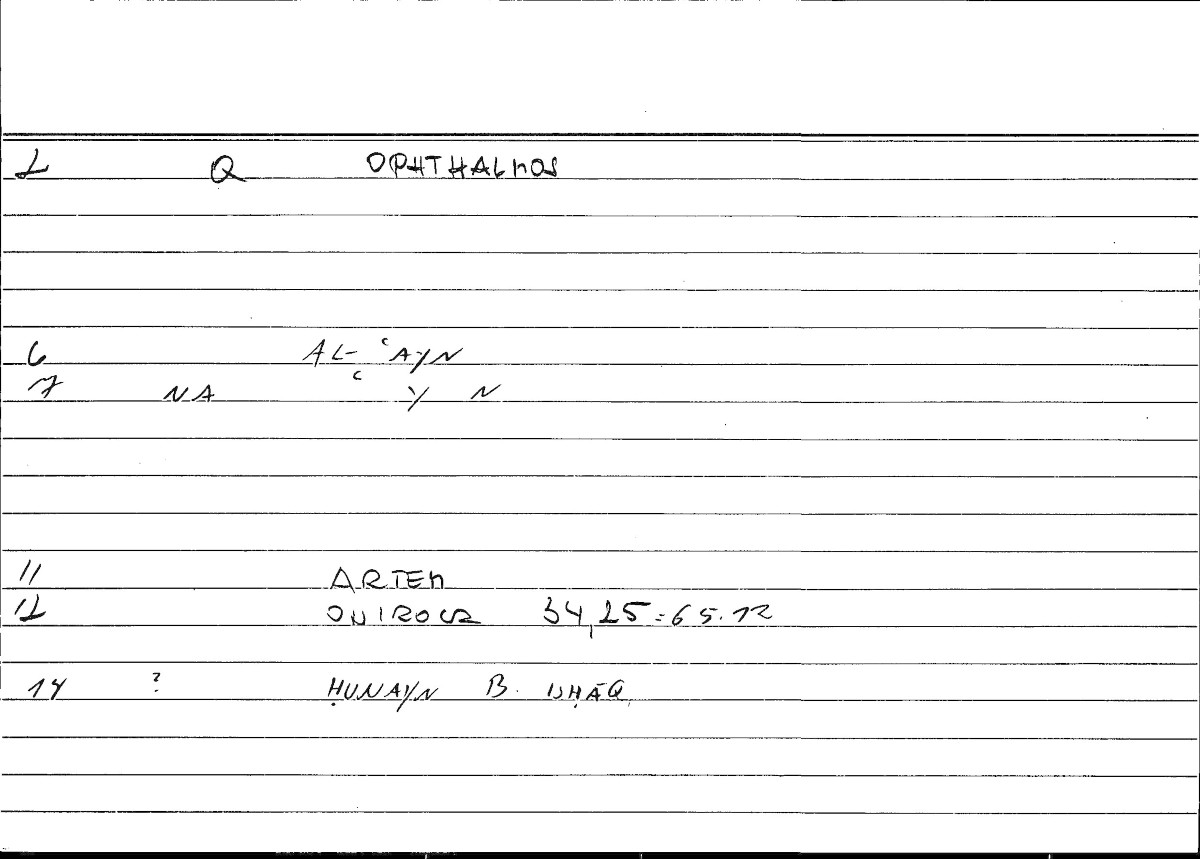 2 Q OPHTHALMOS
6 AL- ʿAYN
7 NA ʿ Y N
11 ARTEM
12 ONIROCR 34,25=65.12
14 ? ḤUNAYN B. ISḤĀQ